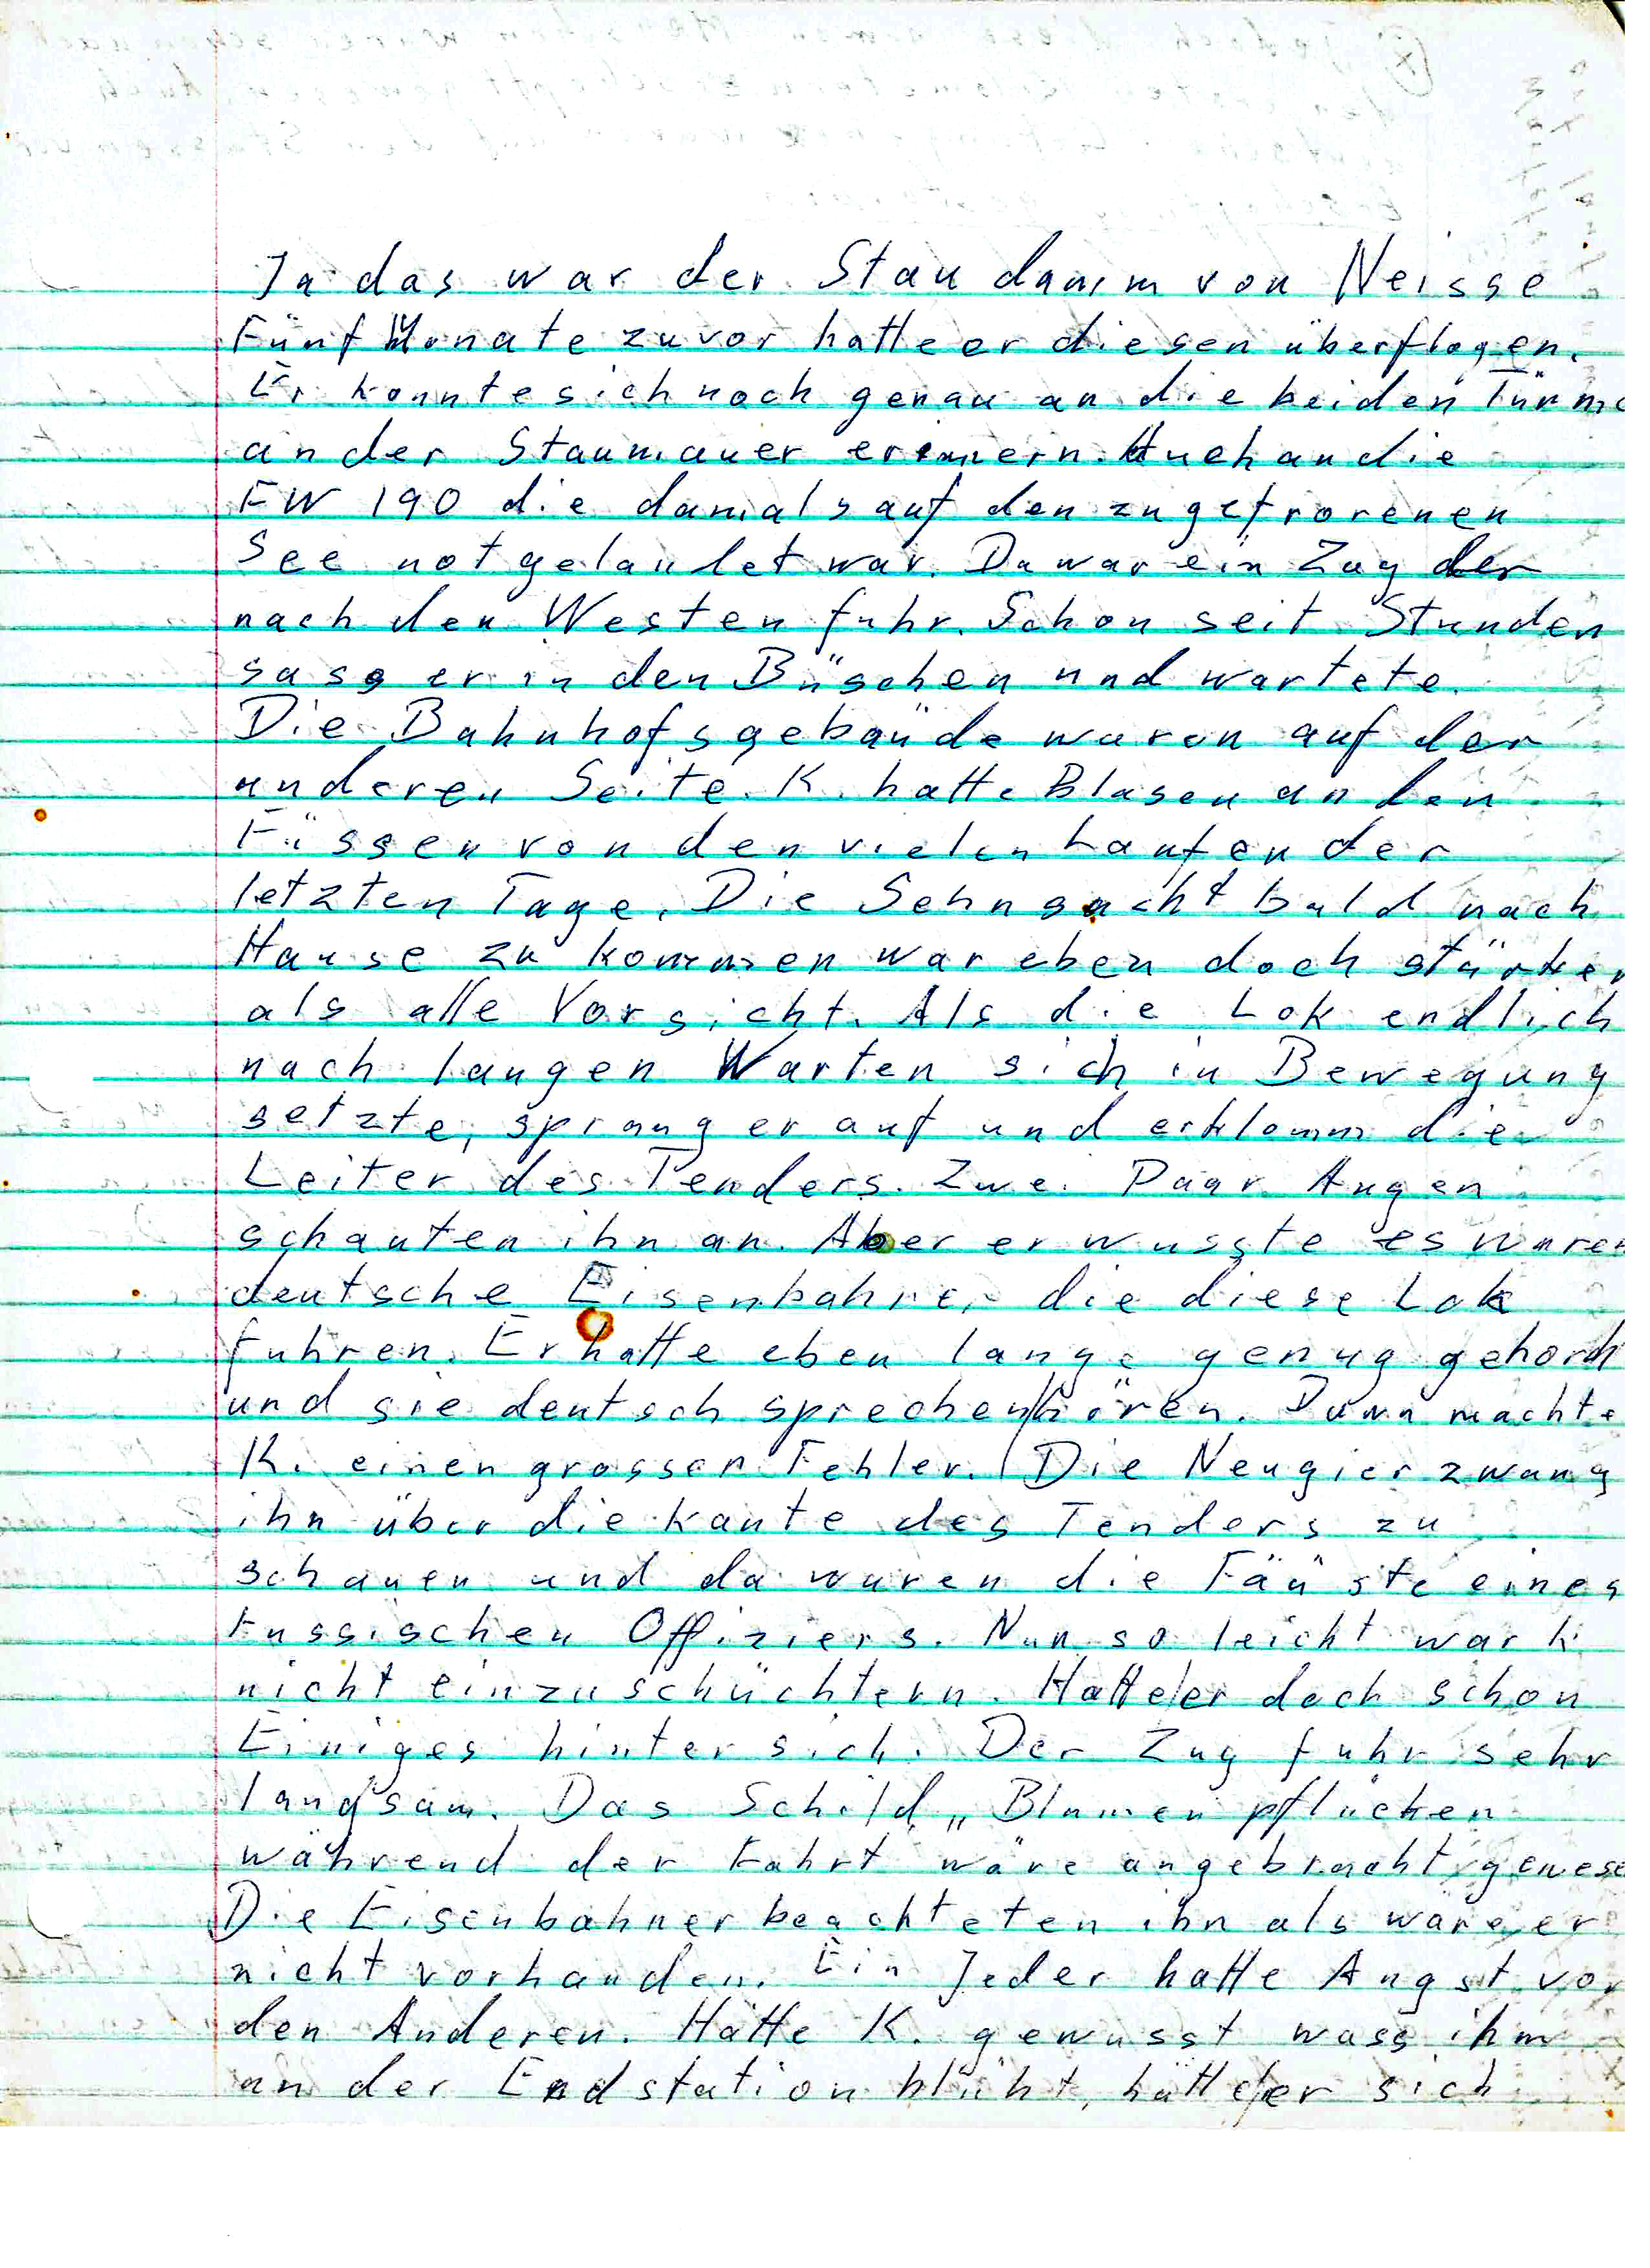 Ja das war der Staudamm von Neisse
Fünf Monate zuvor hatte er diesen überflogen.
Er konnte sich noch genau an die beiden Türme
an der Staumauer erinnern. Auch an die
FW 190 die damals auf den zugefrorenen
See notgelandet war. Da war ein Zug der
nach den Westen fuhr. Schon seit Stunden
sass er in den Büschen und wartete.
Die Bahnhofsgebäude waren auf der
anderen Seite. K. hatte Blasen an den
Füssen von den vielen Laufen der
letzten Tage. Die Sehnsucht bald nach
Hause zu kommen war eben doch stärker
als alle Vorsicht. Als die Lok endlich
nach langen Warten sich in Bewegung
setzte, sprang er auf und erklomm die
Leiter des Tenders. Zwei Paar Augen
schauten ihn an. Aber er wusste es waren
deutsche Eisenbahner die diese Lok
fuhren. Er hatte eben lange genug gehorch
und sie deutsch sprechen hören. Dann machte
K. einen grossen Fehler. Die Neugier zwang
ihn über die Kante des Tenders zu
schauen und da waren die Fäuste eines
russischen Offiziers. Nun so leicht war K.
nicht einzuschüchtern. Hatte er doch schon
Einiges hinter sich. Der Zug fuhr sehr
langsam. Das Schild „Blumen pflücken
während der Fahrt wäre angebracht gewese
Die Eisenbahner beachteten ihn als wäre er
nicht vorhanden. Ein Jeder hatte Angst vor
den Anderen. Hätte K. gewusst wass ihm
an der Endstation blüht, hätte er sich